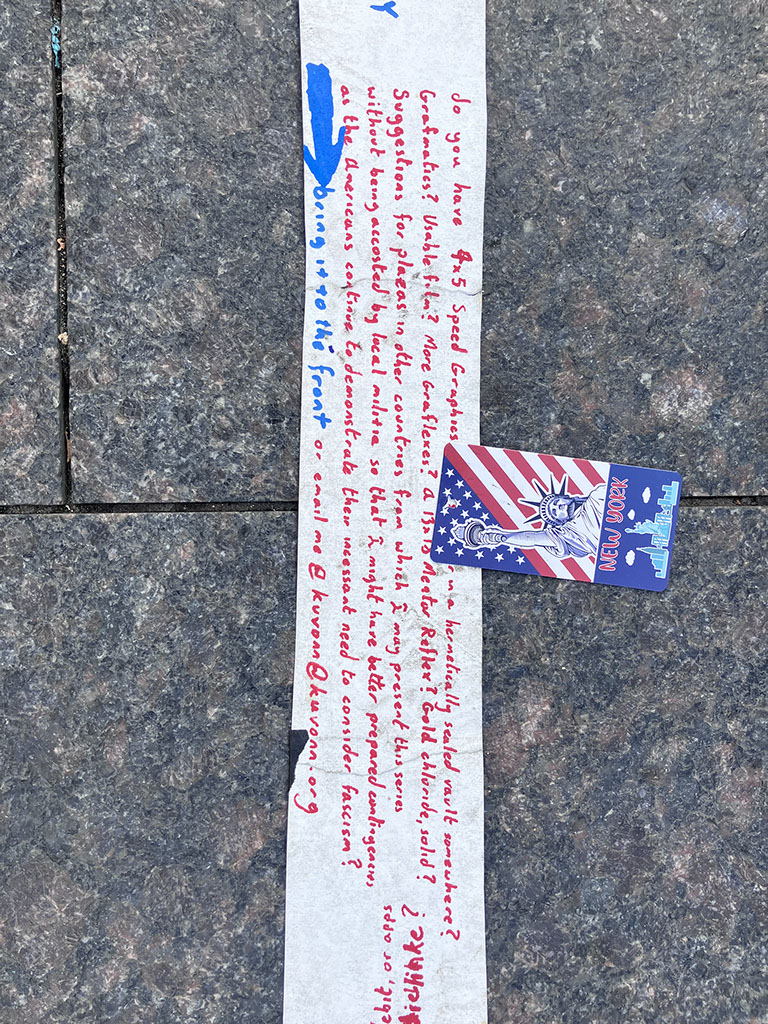 Y
do you have 4x5 Speed Graphics a hermetically sealed vault somewhere?
Grafmatics? Usable film? More Graflexes? a 13x18 Mentor Reflex? Gold chloride, solid?
Suggestions for plazas in other countries from which I may present this series
without being accosted by local militia so that I might have better prepared contingencies,
as the Americans continue to demonstrate their incessant need to consider fascism?
bring it to the front or email me @ kuvonn@kuvonn.org
NEW YORK
or odds